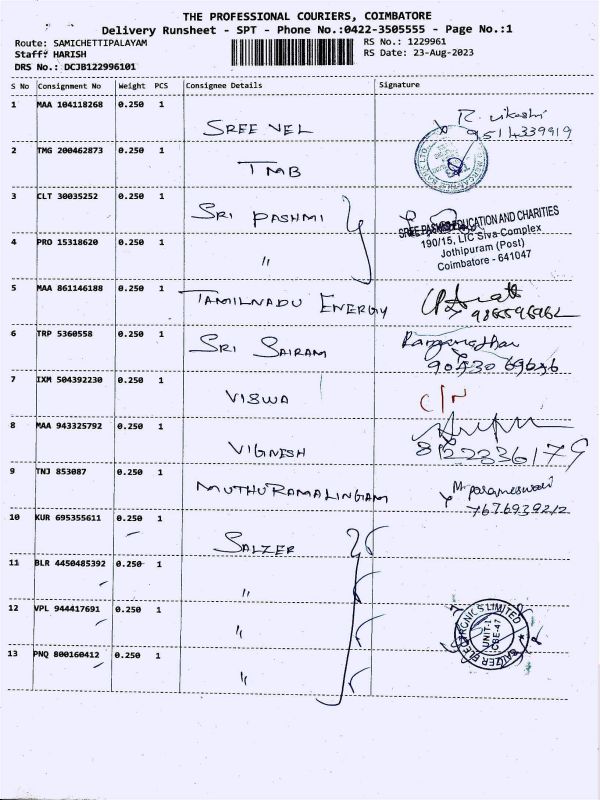 THE PROFESSIONAL COURIERS, COIMBATORE
Delivery Runsheet - SPT - Phone No.:0422-3505555 - Page No.:1
Route: SAMICHETTIPALAYAM
RS No.: 1229961
Staff: HARISH
RS Date: 23-Aug-2023
DRS No.: DCJB122996101
S No Consignment No Weight PCS Consignee Details Signature
1 MAA 104118268 0.250 1 SREE VEL R.
9514339919
2 TMG 200462873 0.250 1 TMB
3 CLT 30035252 0.250 1 SRI PASHMI
EDUCATION AND CHARITIES
190/15, LIC Siva Complex
Jothipuram (Post)
Coimbatore - 641047
4 PRO 15318620 0.250 1 "
5 MAA 861146188 0.250 1 TAMILNADU ENERGY
6 TRP 5360558 0.250 1 SRI SAIRAM
7 IXM 504392230 0.250 1 VISWA C/N
8 MAA 943325792 0.250 1 VIGNESH
8122236179
9 TNJ 853087 0.250 1 MUTHURAMALINGAM M. parameswari
7676939212
10 KUR 695355611 0.250 1 SALZER
11 BLR 4450485392 0.250 1 "
12 VPL 944417691 0.250 1 "
SALZER ELECTRONICS LIMITED
UNIT-1
CBE-47
13 PNQ 800160412 0.250 1 "